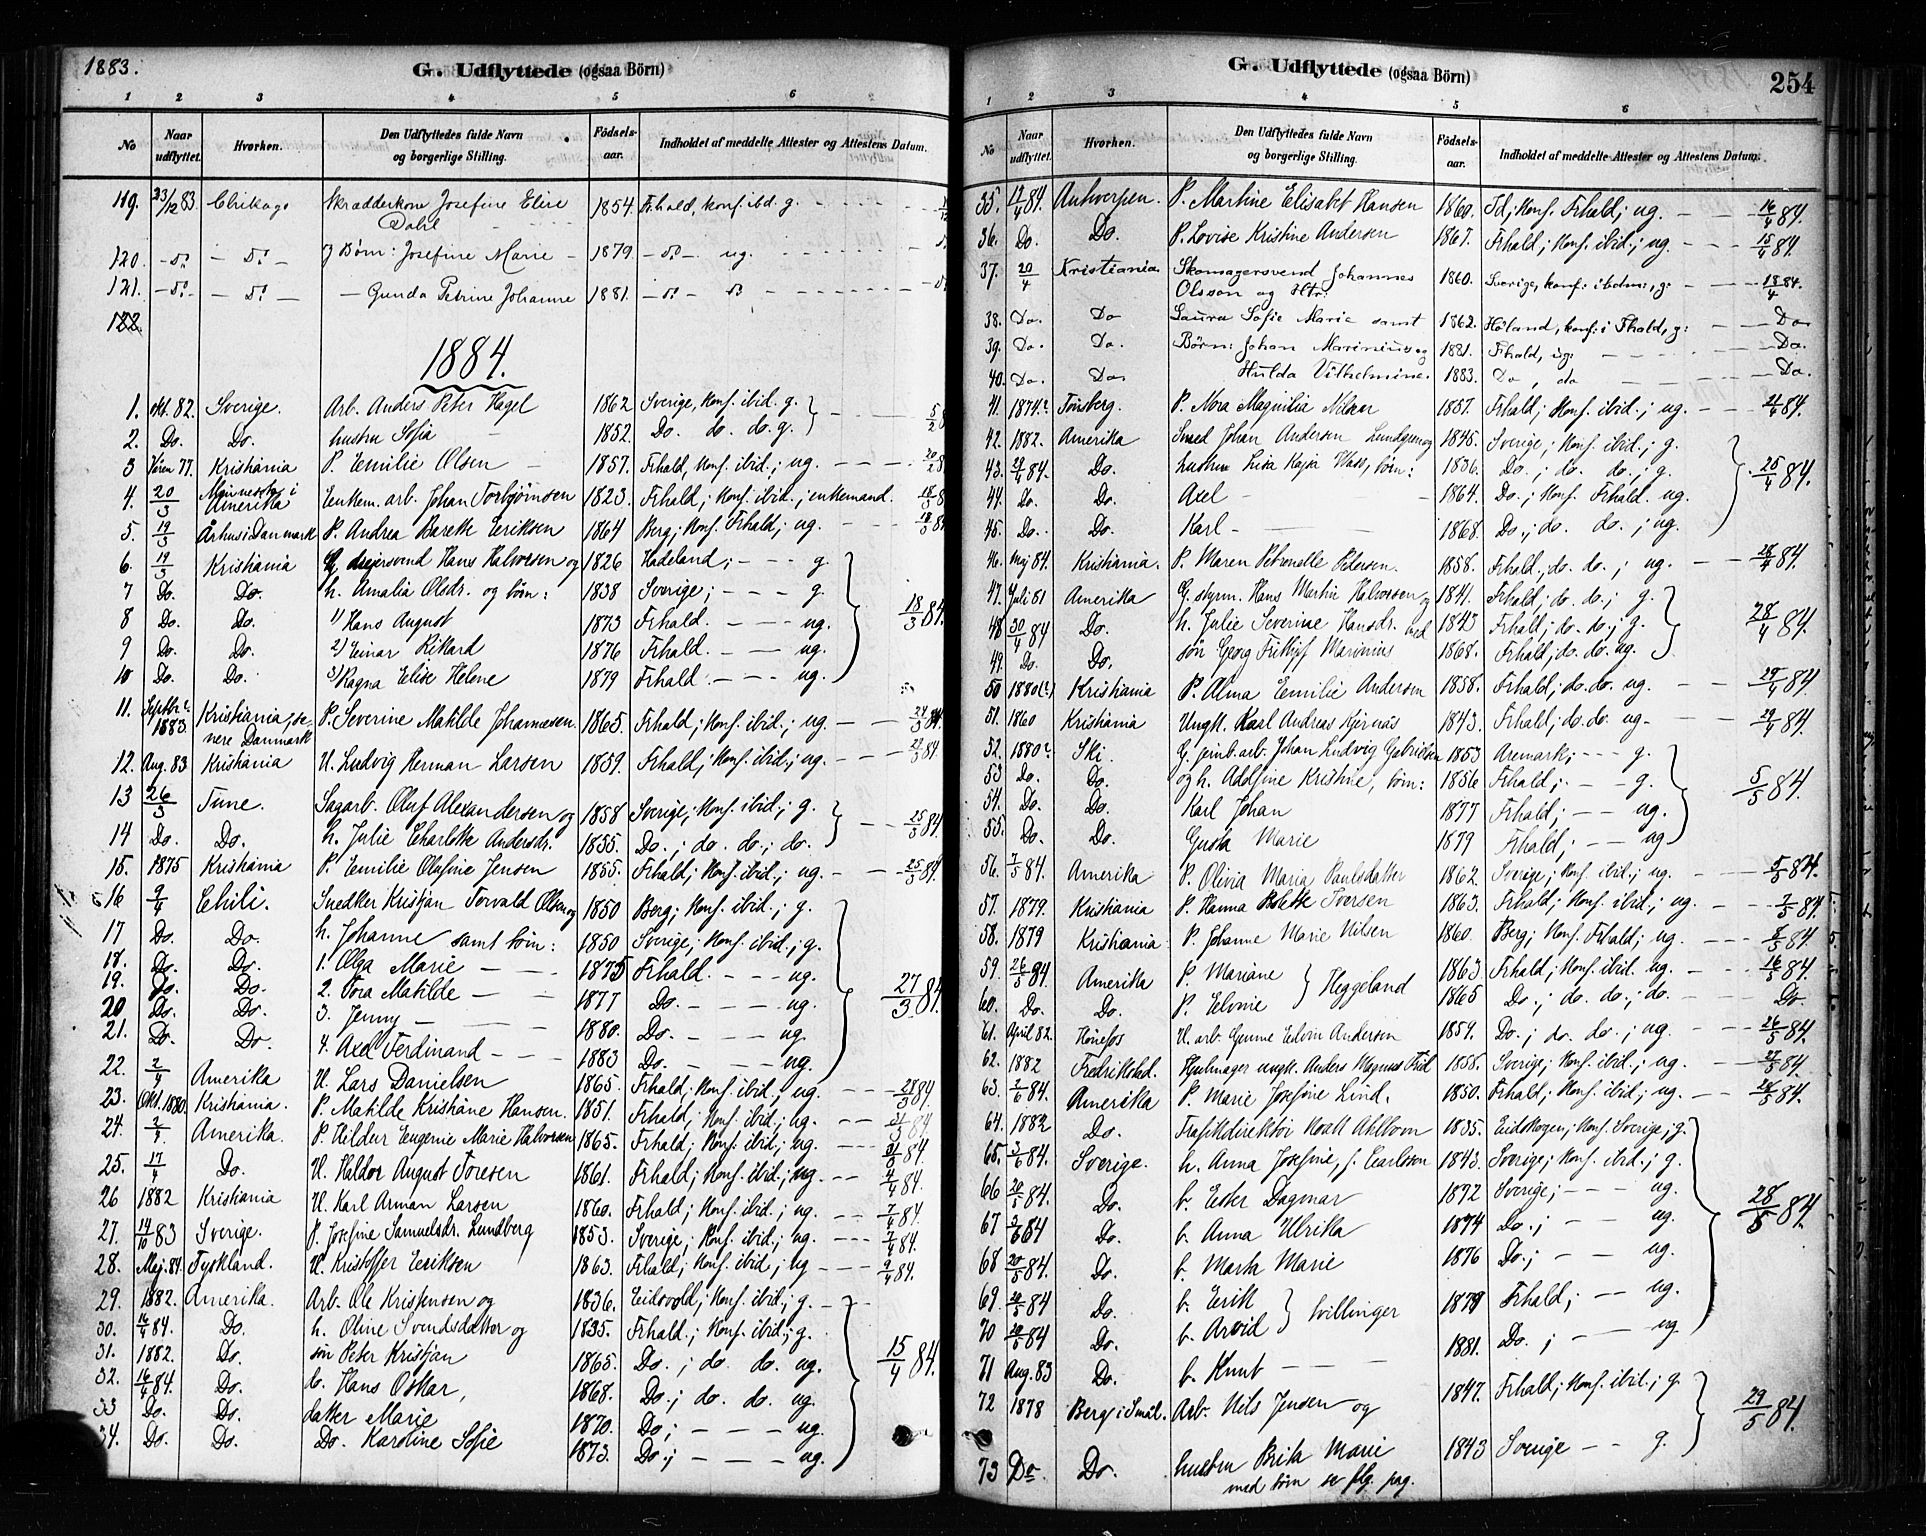 1883.
G. Udflyttede (ogsaa Börn)
1 2 3 4 5 6
No Naar udflyttet. Hvorhen. Den Udflyttedes fulde Navn og borgerlige Stilling. Födsels-aar. Indholdet af meddelte Attester og Attestens Datum.
119. 23/12 83. Chikago Skrædderkone Josefine Elise 1854. Fr.hald, konf. ibd. g.
Dahl
120. - do - - do - Børn: Josefine Marie - 1879. - do - ug.
121. - do - - do - - Gunda Petrine Johanne 1881. - do - do
122.
1884.
1. okt. 82. Sverige. Arb. Anders Peter Hagel 1862 Sverige, Konf. ibid. g. 5/2 8
2. Do. Do. hustru Sofia 1852. Do. do. do. g.
3 Våren 77. Kristiania P. Emilie Olsen 1857. Frhald, Konf. ibid.; ug. 20/2 8
4. 20/3 Minnesota i Amerika Enkem. arb. Johan Torbjørnsen 1823. Frhald; Konf. ibid.; enkemand. 18/3 8
5. 19/3 Århus i Danmark P. Andrea Bareth Eriksen 1864 Berg; Konf. Frhald; ug. 18/3 84
6. 19/3 Kristiania G. dreiersvend Hans Halvorsen og 1826 Hadeland; - - - g.
7 Do. Do. h. Amalia Olsdr. og børn: 1838 Sverige; - - - g.
8 Do. Do. 1) Hans August 1873 Frhald. - - - ug. 18/3 84.
9 Do. Do. 2) Einar Rikard 1876 Frhald. - - - ug.
10 Do. Do. 3) Ragna Elise Helene 1879 Frhald. - - - ug.
11. Septbr. 1883. Kristiania, senere Danmark P. Severine Matilde Johannesen 1865. Frhald; Konf. ibid.; ug. 24/3 84.
12. Aug. 83 Kristiania U. Ludvig Herman Larsen 1859. Frhald; Konf. ibid.; ug. 24/3 84
13 26/3 Tune. Sagarb. Oluf Alexandersen og 1858 Sverige; Konf. ibid.; g. 25/3 84.
14 Do. Do. h. Julie Charlotte Andersdr. 1855. Do.; do. do.; do.
15. 1875 Kristiania P. Emilie Olufine Jensen 1855. Frhald; Konf. ibid.; ug. 25/3 84.
16 9/4 Chili. Snedker Kristian Torvald Olsen og 1850 Berg; Konf. ibid.; g.
17 Do. Do. h. Johanne samt børn: 1850 Sverige; Konf. ibid.; g.
18. Do. Do. 1. Olga Marie 1875 Frhald. - - - ug.
19. Do. Do. 2. Tora Matilde 1877 Do. - - - ug. 27/3 84.
20 Do. Do. 3. Jenny 1880. Do. - - - ug.
21. Do. Do. 4. Axel Ferdinand 1883 Do. - - - ug.
22. 2/4 Amerika U. Lars Danielsen 1865. Frhald; Konf. ibid.; ug. 28/3 84.
23. Okt. 1880. Kristiania. P. Matilde Kristiane Hansen. 1851. Frhald; Konf. ibid.; ug. 31/3 84
24. 2/4 Amerika. P. Hildur Eugenie Marie Halvorsen 1865. Frhald; Konf. ibid.; ug. 31/3 84.
25. 17/4 Do. U. Haldor August Toresen 1861. Frhald; Konf. ibid.; ug. 2/4 84.
26 1882 Kristiania U. Karl Arman Larsen 1860. Frhald; Konf. ibid.; ug. 7/4 84.
27. 14/10 83 Sverige. P. Josefine Samuelsdr. Lundberg 1853. Sverige; Konf. ibid.; ug. 7/4 84.
28. Maj. 84 Tyskland. U. Kristoffer Eriksen 1863. Frhald; Konf. ibid.; ug 9/4 84.
29. 1882. Amerika. Arb. Ole Kristensen og 1836. Eidsvold; Konf. ibid.; g.
30. 16/4 84. Do. h. Oline Svendsdatter og 1835. Frhald.; Konf. ibid.; g.
31. 1882. Do. søn Peter Kristjan 1865. Do.; do. do. ug. 15/4 84.
32. 16/4 84. Do. do. Hans Oskar, 1868. Do.; do. do. ug.
33 Do. Do. datter Marie 1870. Do; - - - ug.
34. Do. Do. Do. Karoline Sofie 1873. Do.; - - - ug.
G. Udflyttede (ogsaa Börn)
254
1 2 3 4 5 6
No Naar udflyttet. Hvorhen. Den Udflyttedes fulde Navn og borgerlige Stilling. Födsels-aar. Indholdet af meddelte Attester og Attestens Datum.
35. 17/4 84. Antwerpen. P. Martine Elisabet Hansen 1860. Id; Konf. Frhald; ug. 16/4 84.
36. Do. Do. P. Lovise Kristine Andersen 1867. Frhald; Konf. ibid.; ug. 15/4 84.
37. 20/4 Kristiania. Skomagersvend Johannes 1860. Sverige, konf: ibdm:, g: 18/4 84.
Olsson og Htr:
38. Do. Do Laura Sofie Marie samt 1862. Høland, konf: i Fhald, g: Do
39. Do. Do. Børn: Johan Marinius og 1881. Frhald, ug: Do.
40. Do. Do. Hulda Vilhelmine. 1883. Do, do Do.
41. 1874. Tønsberg. P. Nora Magnilia Nilsen 1857. Frhald; Konf. ibid.; ug. 21/4 84.
42. 1882. Amerika Smed Johan Andersen Lundgren og 1845. Sverige; Konf. ibid.; g.
43. 24/4 84. Do. hustru Lisa Kajsa børn: 1836. Do.; do. do.; g. 25/4 84.
44. Do. Do. Axel 1864. Do.; Konf. Frhald. ug.
45. Do. Do. Karl 1868. Do.; do. do.; ug.
46. Maj 84. Kristiania. P. Maren Petrenelle Pedersen. 1858. Frhald.; do. do.; ug. 28/4 84.
47. Juli 81 Amerika G. styrm. Hans Martin Halvorsen og 1841. Frhald; do. do.; g.
48 30/4 84 Do. h. Julie Severine Hansdr. med 1843 Frhald; do. do.; g. 28/4 84.
49. Do. Do. søn Georg Fritjof Marinius 1868. Frhald; do. do. ug.
50 1880(?) Kristiania P. Alma Emilie Andersen 1858. Frhald; do. do. ug. 29/4 84
51. 1860 Kristiania Ungk. Karl Andreas Kjernås 1843. Frhald; do. do. ug. 29/4 84.
52. 1880? Ski. G. jernb.arb. Johan Ludvig Gabrielsen 1853 Aremark; - - - g.
53 Do. Do. og h. Adolfine Kristine, børn: 1856 Frhald; - - g. 5/5 84.
54. Do. Do. Karl Johan 1877 Frhald; - - ug.
55. Do. Do. Gusta Marie 1879 Frhald; - - ug
56. 7/5 84. Amerika P. Olivia Maria Paulsdatter 1862. Sverige; Konf. ibid.; ug. 5/5 84.
57. 1879. Kristiania P. Hanna Bolette Iversen 1863. Frhald; Konf. ibid.; ug. 7/5 84.
58. 1879 Kristiania. P. Johanne Marie Nilsen 1860 Berg; Konf. Frhald; ug. 8/5 84.
59. 26/5 84. Amerika P. Mariane } Heggeland 1863. Frhald; Konf. ibid. ug. 16/5 84.
60. Do. Do. P. Elvine 1865 Do.; do. do.; do. Do.
61. April 82. Hønefos U. arb. Gunne Edvin Andersen 1859. Do.; do. do.; ug. 26/5 84.
62. 1882 Fredrikstad. Hjulmager ungk. Anders Magnus Frid 1855. Sverige; Konf. ibid.; ug. 27/5 84.
63. 2/6 84. Amerika P. Marie Josefine Lind. 1850. Frhald; Konf. ibid.; ug. 28/5 84.
64. 1882 Do. Trafikdirektør Ahlbom 1835. Eidskogen; Konf. Sverige; g.
65. 3/6 84. Sverige. h. Anna Josefine, f. Carlsson 1843. Sverige; Konf. ibid.; g.
66 20/5 84. Do. b. Ester Dagmar 1872 Sverige; - - - ug. 28/5 84.
67 3/6 84 Do. b. Anna Ulrika 1874 Do.; - - ug.
68 20/5 84. Do. b. Marta Marie 1876 Do.; - - ug.
69. 20/5 84 Do. b. Erik } tvillinger 1879 Frhald; - - ug.
70 20/5 84 Do. b. Arvid
71 Aug. 83 Do. b. Knut 1881. Do.; - - ug
72 1878 Berg i Smål. Arb. Nils Jensen og 1847. Frhald; Konf. ibid.; g. 29/5 84.
73 Do. Do. hustru Brita Marie 1843 Sverige - - g.
med børn se flg. pag.